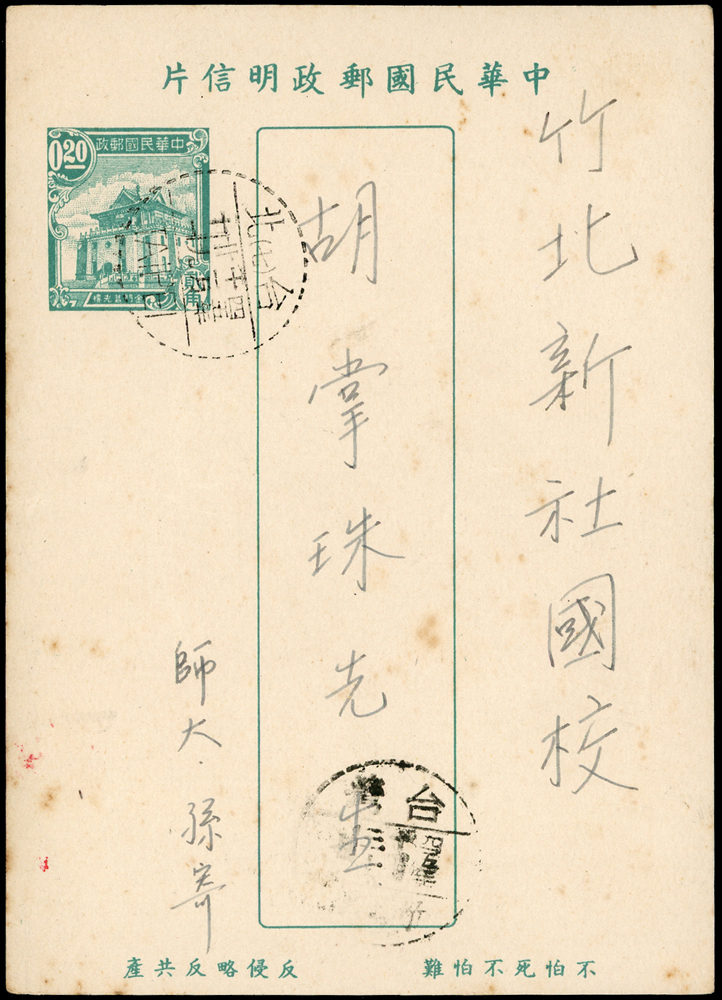 中華民國郵政明信片
竹北新社國校
胡掌珠先生
師大.孫寄
中華民國郵政
0.20
貳角
台
北
台
不怕死不怕難
反侵略反共產